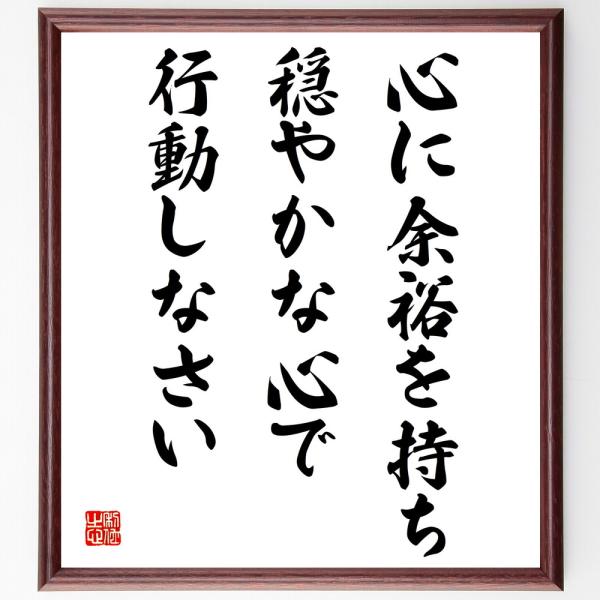 心に余裕を持ち
穏やかな心で
行動しなさい